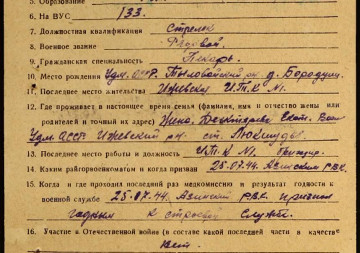 5. Образование
6. На ВУС 133.
7. Должностная квалификация Стрелок
8. Военное звание Рядовой.
9. Гражданская специальность Пекарь.
10. Место рождения Удм. АССР. Тыловайский р-н д. Бородули
11. Последнее место жительства Ижевская И.Т.К №1.
12. Где проживает в настоящее время семья (фамилия, имя и отчество жены или
родителей и точный их адрес) Жена.
Удм. АССР Ижевский р-н. ст. Люкшудья
13. Последнее место работы и должность И.Т.К №1
14. Каким райгорвоенкоматом и когда призван 25.07.44. Азинским РВК.
15. Когда и где проходил последний раз медкомиссию и результат годности к
военной службе 25.07.44. Азинский РВК. признан
годным к строевой службе.
16. Участие в Отечественной войне (в составе какой последней части и в качестве